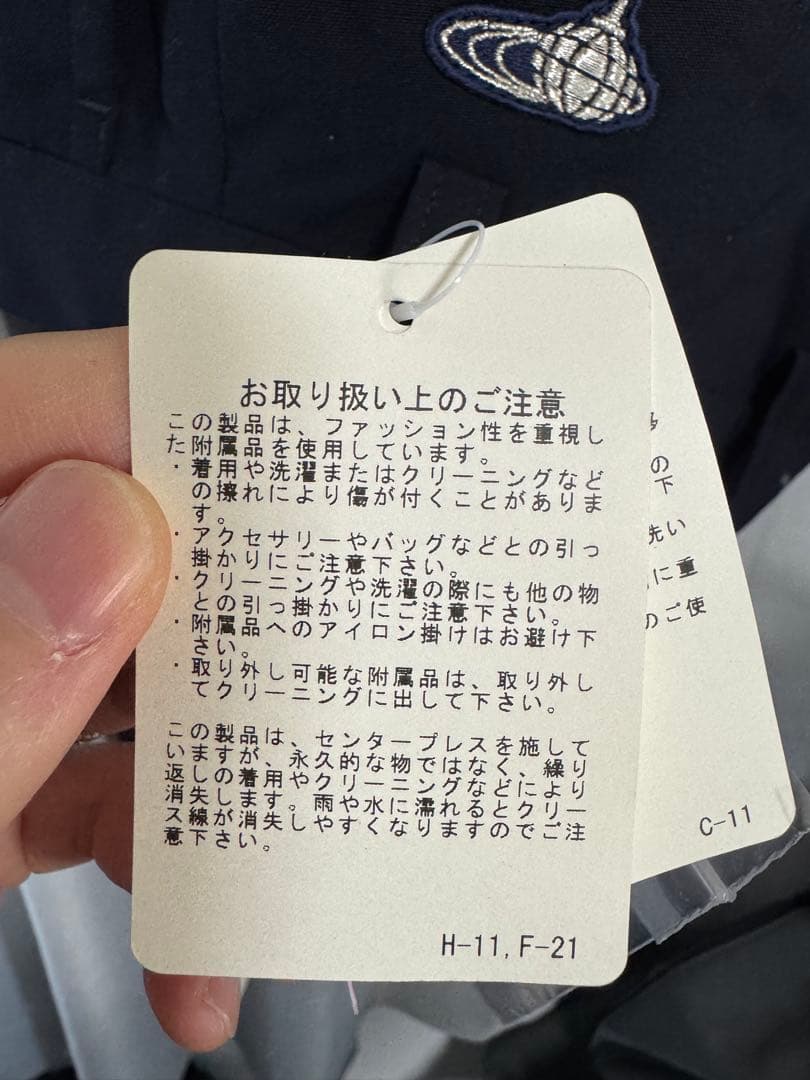 お取り扱い上のご注意
この製品は、ファッション性を重視し
た附属品を使用しています。
・着用や洗濯またはクリーニングなど
の擦れにより傷が付くことがありま
す。
・アクセサリーやバッグなどとの引っ
掛かりにご注意下さい。
・クリーニングや洗濯の際にも他の物
との引っ掛かりにご注意下さい。
・附属品へのアイロン掛けはお避け下
さい。
・取り外し可能な附属品は、取り外し
てクリーニングに出して下さい。
この製品は、センタープレスを施して
いますが、永久的な物ではなく、繰り
返しの着用やクリーニングなどにより
消失します。雨や水に濡れるとクリー
ス線が消失しやすくなりますのでご注
意下さい。
H-11,F-21
の下
洗い
に重
のご使
C-11